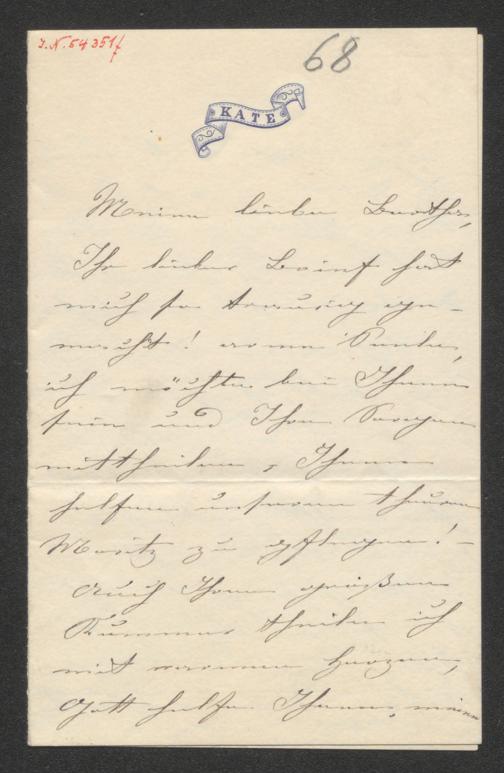 I.N. 54351f
68
KATE
Meine liebe Bertha,
Ihr lieber Brief hat
mich so traurig ge-
macht! arme Seele,
ich möchte bei Ihnen
sein und Ihre Sorgen
mittheilen, Ihnen
helfen unseren theuren
Moritz zu pflegen! –
Auch Ihren großen
Kummer theile ich
mit warmen Herzen,
Gott helfe Ihnen, meine